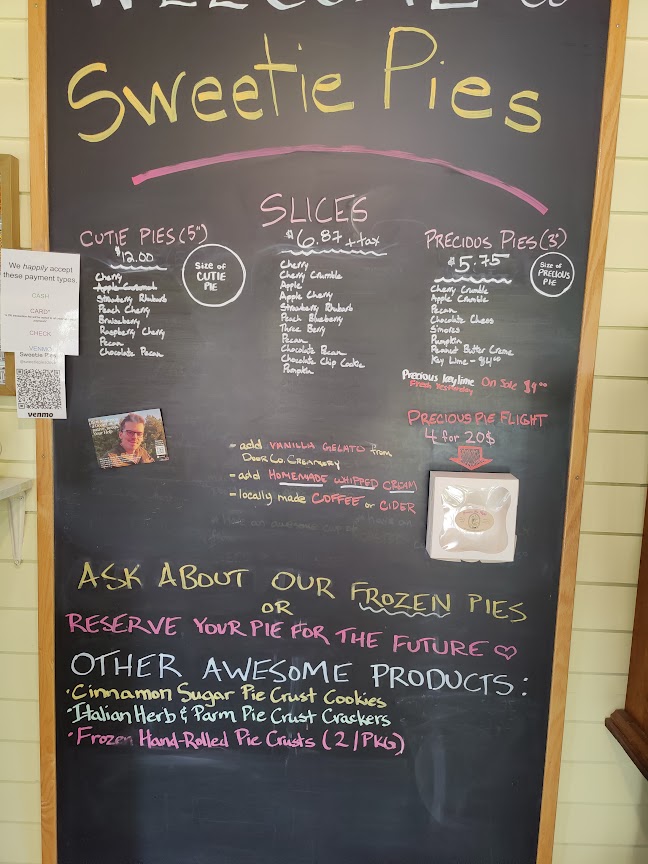 WELCOME to
Sweetie Pies
CUTIE PIES (5")
$12.00
Cherry
Apple Caramel
Strawberry Rhubarb
Peach Cherry
Bruiseberry
Raspberry Cherry
Pecan
Chocolate Pecan
Size of
CUTIE
PIE
SLICES
$6.87 + tax
Cherry
Cherry Crumble
Apple
Apple Cherry
Strawberry Rhubarb
Peach Blueberry
Three Berry
Pecan
Chocolate Pecan
Chocolate Chip Cookie
Pumpkin
PRECIOUS PIES (3")
$5.75
Cherry Crumble
Apple Crumble
Pecan
Chocolate Chess
S'mores
Pumpkin
Peanut Butter Creme
Key Lime - $14.00
Size of
PRECIOUS
PIE
Precious Key lime On Sale $4.00
Fresh Yesterday
PRECIOUS PIE FLIGHT
4 for 20$
We happily accept
these payment types
CASH
CARD*
CHECK
VENMO
Sweetie Pies
venmo
- add VANILLA GELATO from
DOOR CO. CREAMERY
- add HOMEMADE WHIPPED CREAM
- locally made COFFEE or CIDER
ASK ABOUT OUR FROZEN PIES
OR
RESERVE YOUR PIE FOR THE FUTURE ♡
OTHER AWESOME PRODUCTS:
·Cinnamon Sugar Pie Crust Cookies
·Italian Herb & Parm Pie Crust Crackers
·Frozen Hand-Rolled Pie Crusts (2/PKG)